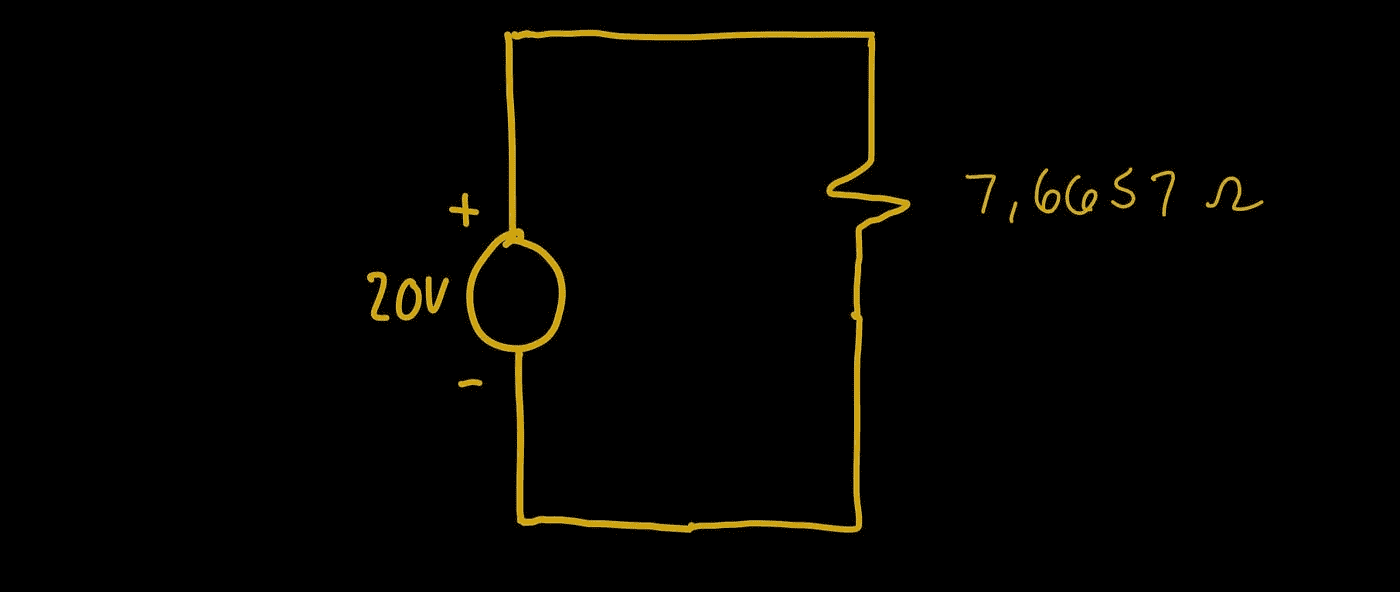 +
20V
-
7,6657 Ω